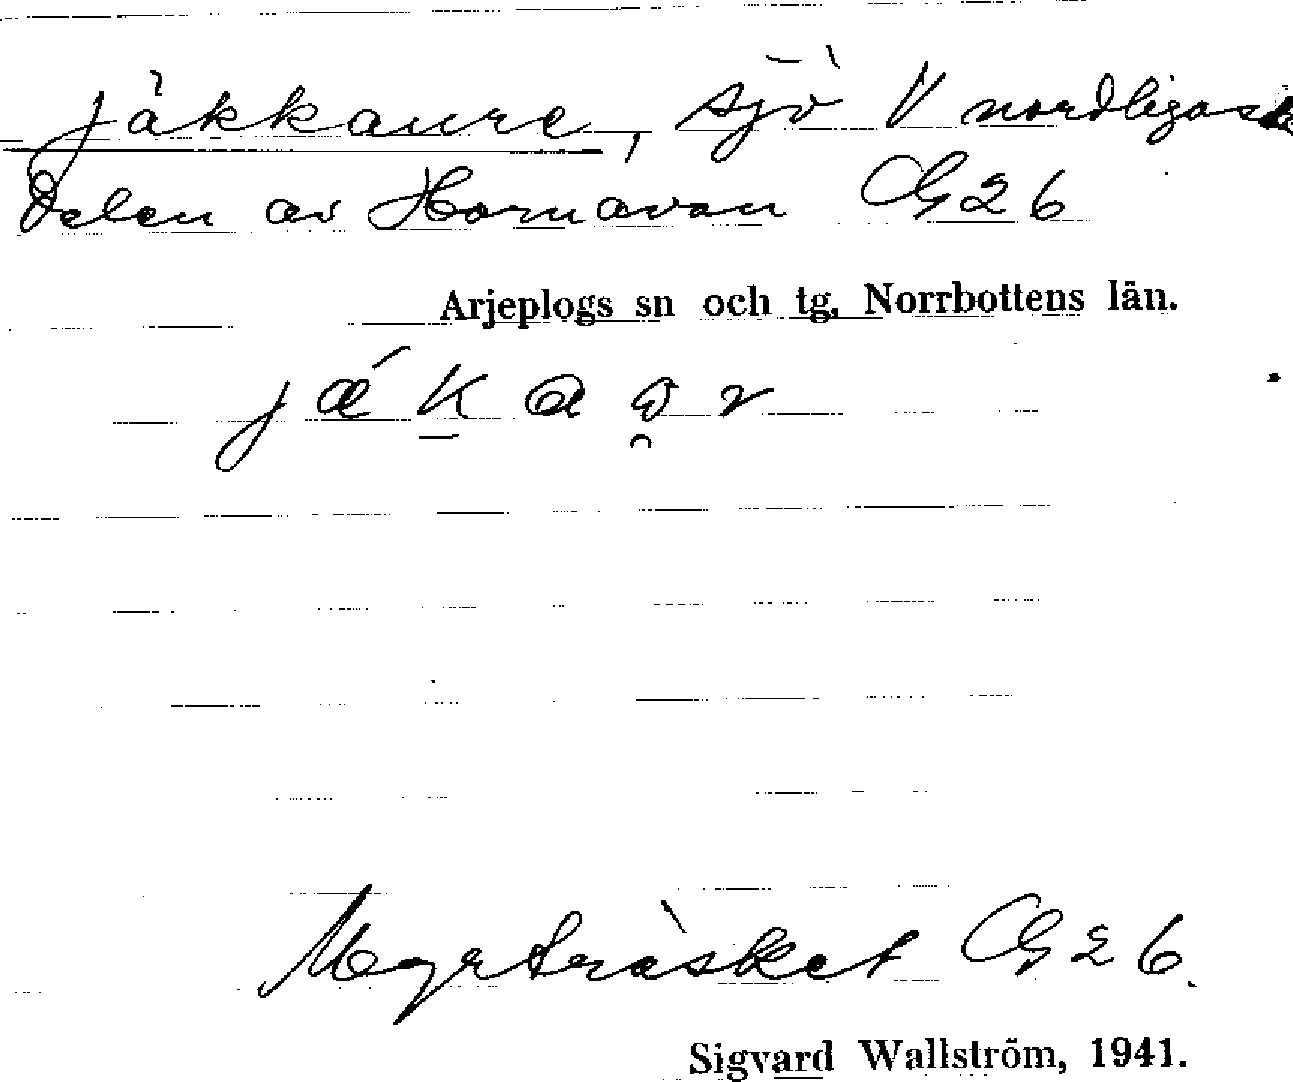 Jäkkaure, sjö V nordligaste
delen av Hornavan G26
Arjeplogs sn och tg, Norrbottens län.
jǽk̠aʊ̯r
Myrträsket G26.
Sigvard Wallström, 1941.